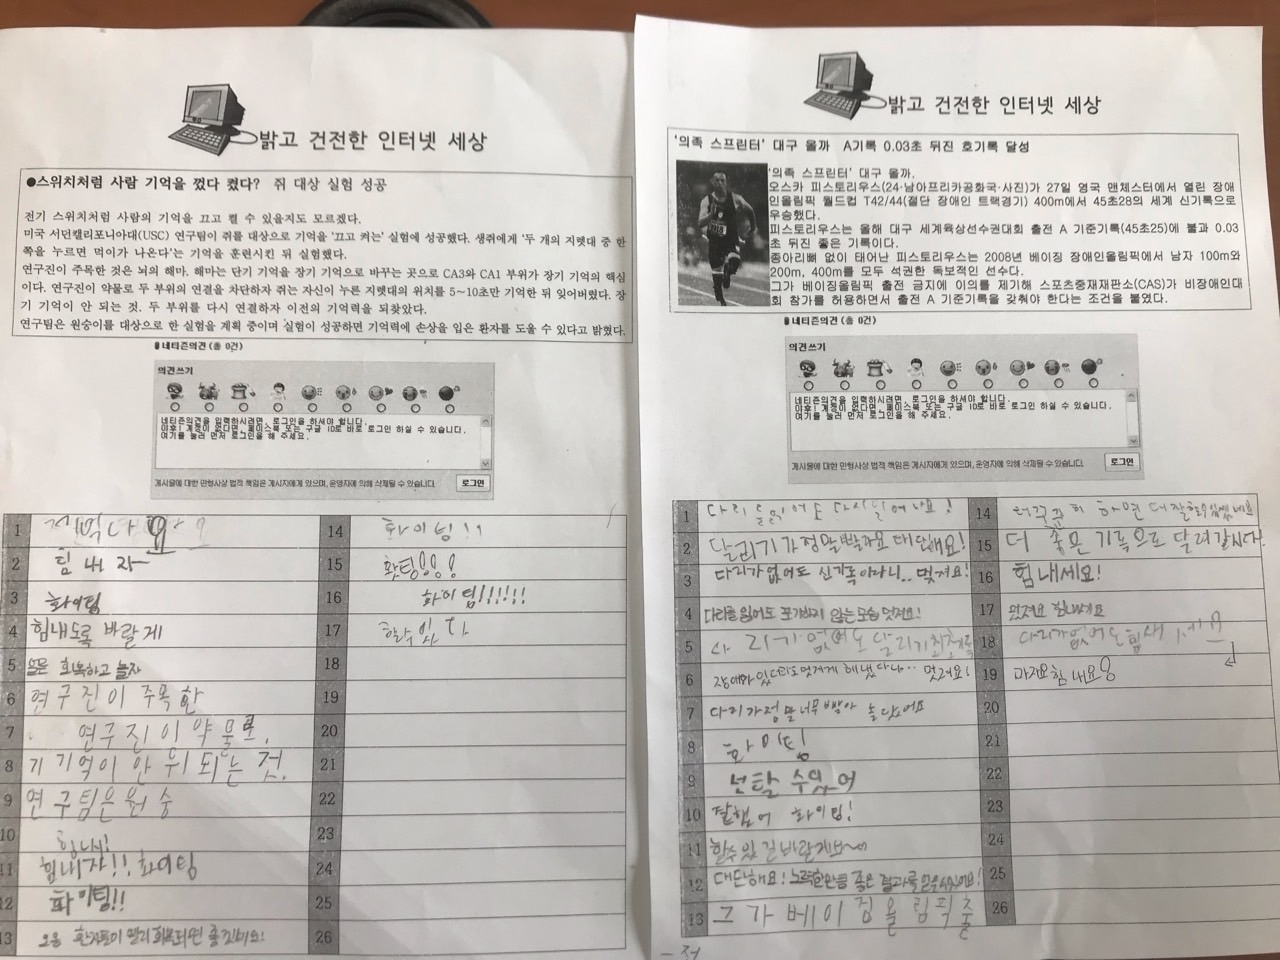 밝고 건전한 인터넷 세상
●스위치처럼 사람 기억을 껐다 켰다? 쥐 대상 실험 성공
전기 스위치처럼 사람의 기억을 끄고 켤 수 있을지도 모르겠다.
미국 서던캘리포니아대(USC) 연구팀이 쥐를 대상으로 기억을 '끄고 켜는' 실험에 성공했다. 생쥐에게 '두 개의 지렛대 중 한
쪽을 누르면 먹이가 나온다'는 기억을 훈련시킨 뒤 실험했다.
연구진이 주목한 것은 뇌의 해마. 해마는 단기 기억을 장기 기억으로 바꾸는 곳으로 CA3와 CA1 부위가 장기 기억의 핵심
이다. 연구진이 약물로 두 부위의 연결을 차단하자 쥐는 자신이 누른 지렛대의 위치를 5~10초만 기억한 뒤 잊어버렸다. 장
기 기억이 안 되는 것. 두 부위를 다시 연결하자 이전의 기억력을 되찾았다.
연구팀은 원숭이를 대상으로 한 실험을 계획 중이며 실험이 성공하면 기억력에 손상을 입은 환자를 도울 수 있다고 밝혔다.
네티즌의견 (총 0건)
의견쓰기
네티즌의견을 입력하시려면, 로그인을 하셔야 합니다.
아후! 계정이 없다면, 페이스북 또는 구글 ID로 바로 로그인 하실 수 있습니다.
여기를 눌러 먼저 로그인을 해 주세요.
게시물에 대한 민형사상 법적 책임은 게시자에게 있으며, 운영자에 의해 삭제될 수 있습니다.
로그인
1
2 힘내자
3 화이팅
4 힘내도록 바랄게
5 얼른 회복하고 놀자
6 연구진이 주목한
7 연구진이 약물로.
8 기 기억이 안 뒤 되는 것.
9 연구팀은 원숭
10
11 힘내자!! 화이팅
12 화이팅!!
13
14 화이팅!!
15 홧팅!!!!
16 화이팅!!!!!!
17 할수있다
18
19
20
21
22
23
24
25
26
밝고 건전한 인터넷 세상
'의족 스프린터' 대구 올까 A기록 0.03초 뒤진 호기록 달성
'의족 스프린터' 대구 올까.
오스카 피스토리우스(24·남아프리카공화국·사진)가 27일 영국 맨체스터에서 열린 장애
인올림픽 월드컵 T42/44(절단 장애인 트랙경기) 400m에서 45초28의 세계 신기록으로
우승했다.
피스토리우스는 올해 대구 세계육상선수권대회 출전 A 기준기록(45초25)에 불과 0.03
초 뒤진 좋은 기록이다.
종아리뼈 없이 태어난 피스토리우스는 2008년 베이징 장애인올림픽에서 남자 100m와
200m, 400m를 모두 석권한 독보적인 선수다.
그가 베이징올림픽 출전 금지에 이의를 제기해 스포츠중재재판소(CAS)가 비장애인대
회 참가를 허용하면서 출전 A 기준기록을 갖춰야 한다는 조건을 붙였다.
네티즌의견 (총 0건)
의견쓰기
네티즌의견을 입력하시려면, 로그인을 하셔야 합니다.
아후! 계정이 없다면, 페이스북 또는 구글 ID로 바로 로그인 하실 수 있습니다.
여기를 눌러 먼저 로그인을 해 주세요.
게시물에 대한 민형사상 법적 책임은 게시자에게 있으며, 운영자에 의해 삭제될 수 있습니다.
로그인
1 다시일어나요!
2 달리기가 정말 빨라요 대단해요!
3 다리가없어도 신기록이라니.. 멋져요!
4 다리를 잃어도 포기하지 않는 모습 멋져요!
5 다리가 없어도 달리기
6 장애가 있더라도 멋지게 해냈다니.. 멋져요!
7 다리가 정말 너무 빨라 놀랐어요
8 화이팅
9 수있어
10 잘했어 화이팅!
11 할수있길 바랄게요~
12 대단해요! 노력한만큼 좋은 결과를
13 그가 베이징올림픽출
14 하면 더잘할수있겠네요
15 더 좋은 기록으로 달려갑시다.
16 힘내세요!
17 멋져요 힘내세요
18 다리가없어도힘내세요
19 힘내요
20
21
22
23
24
25
26